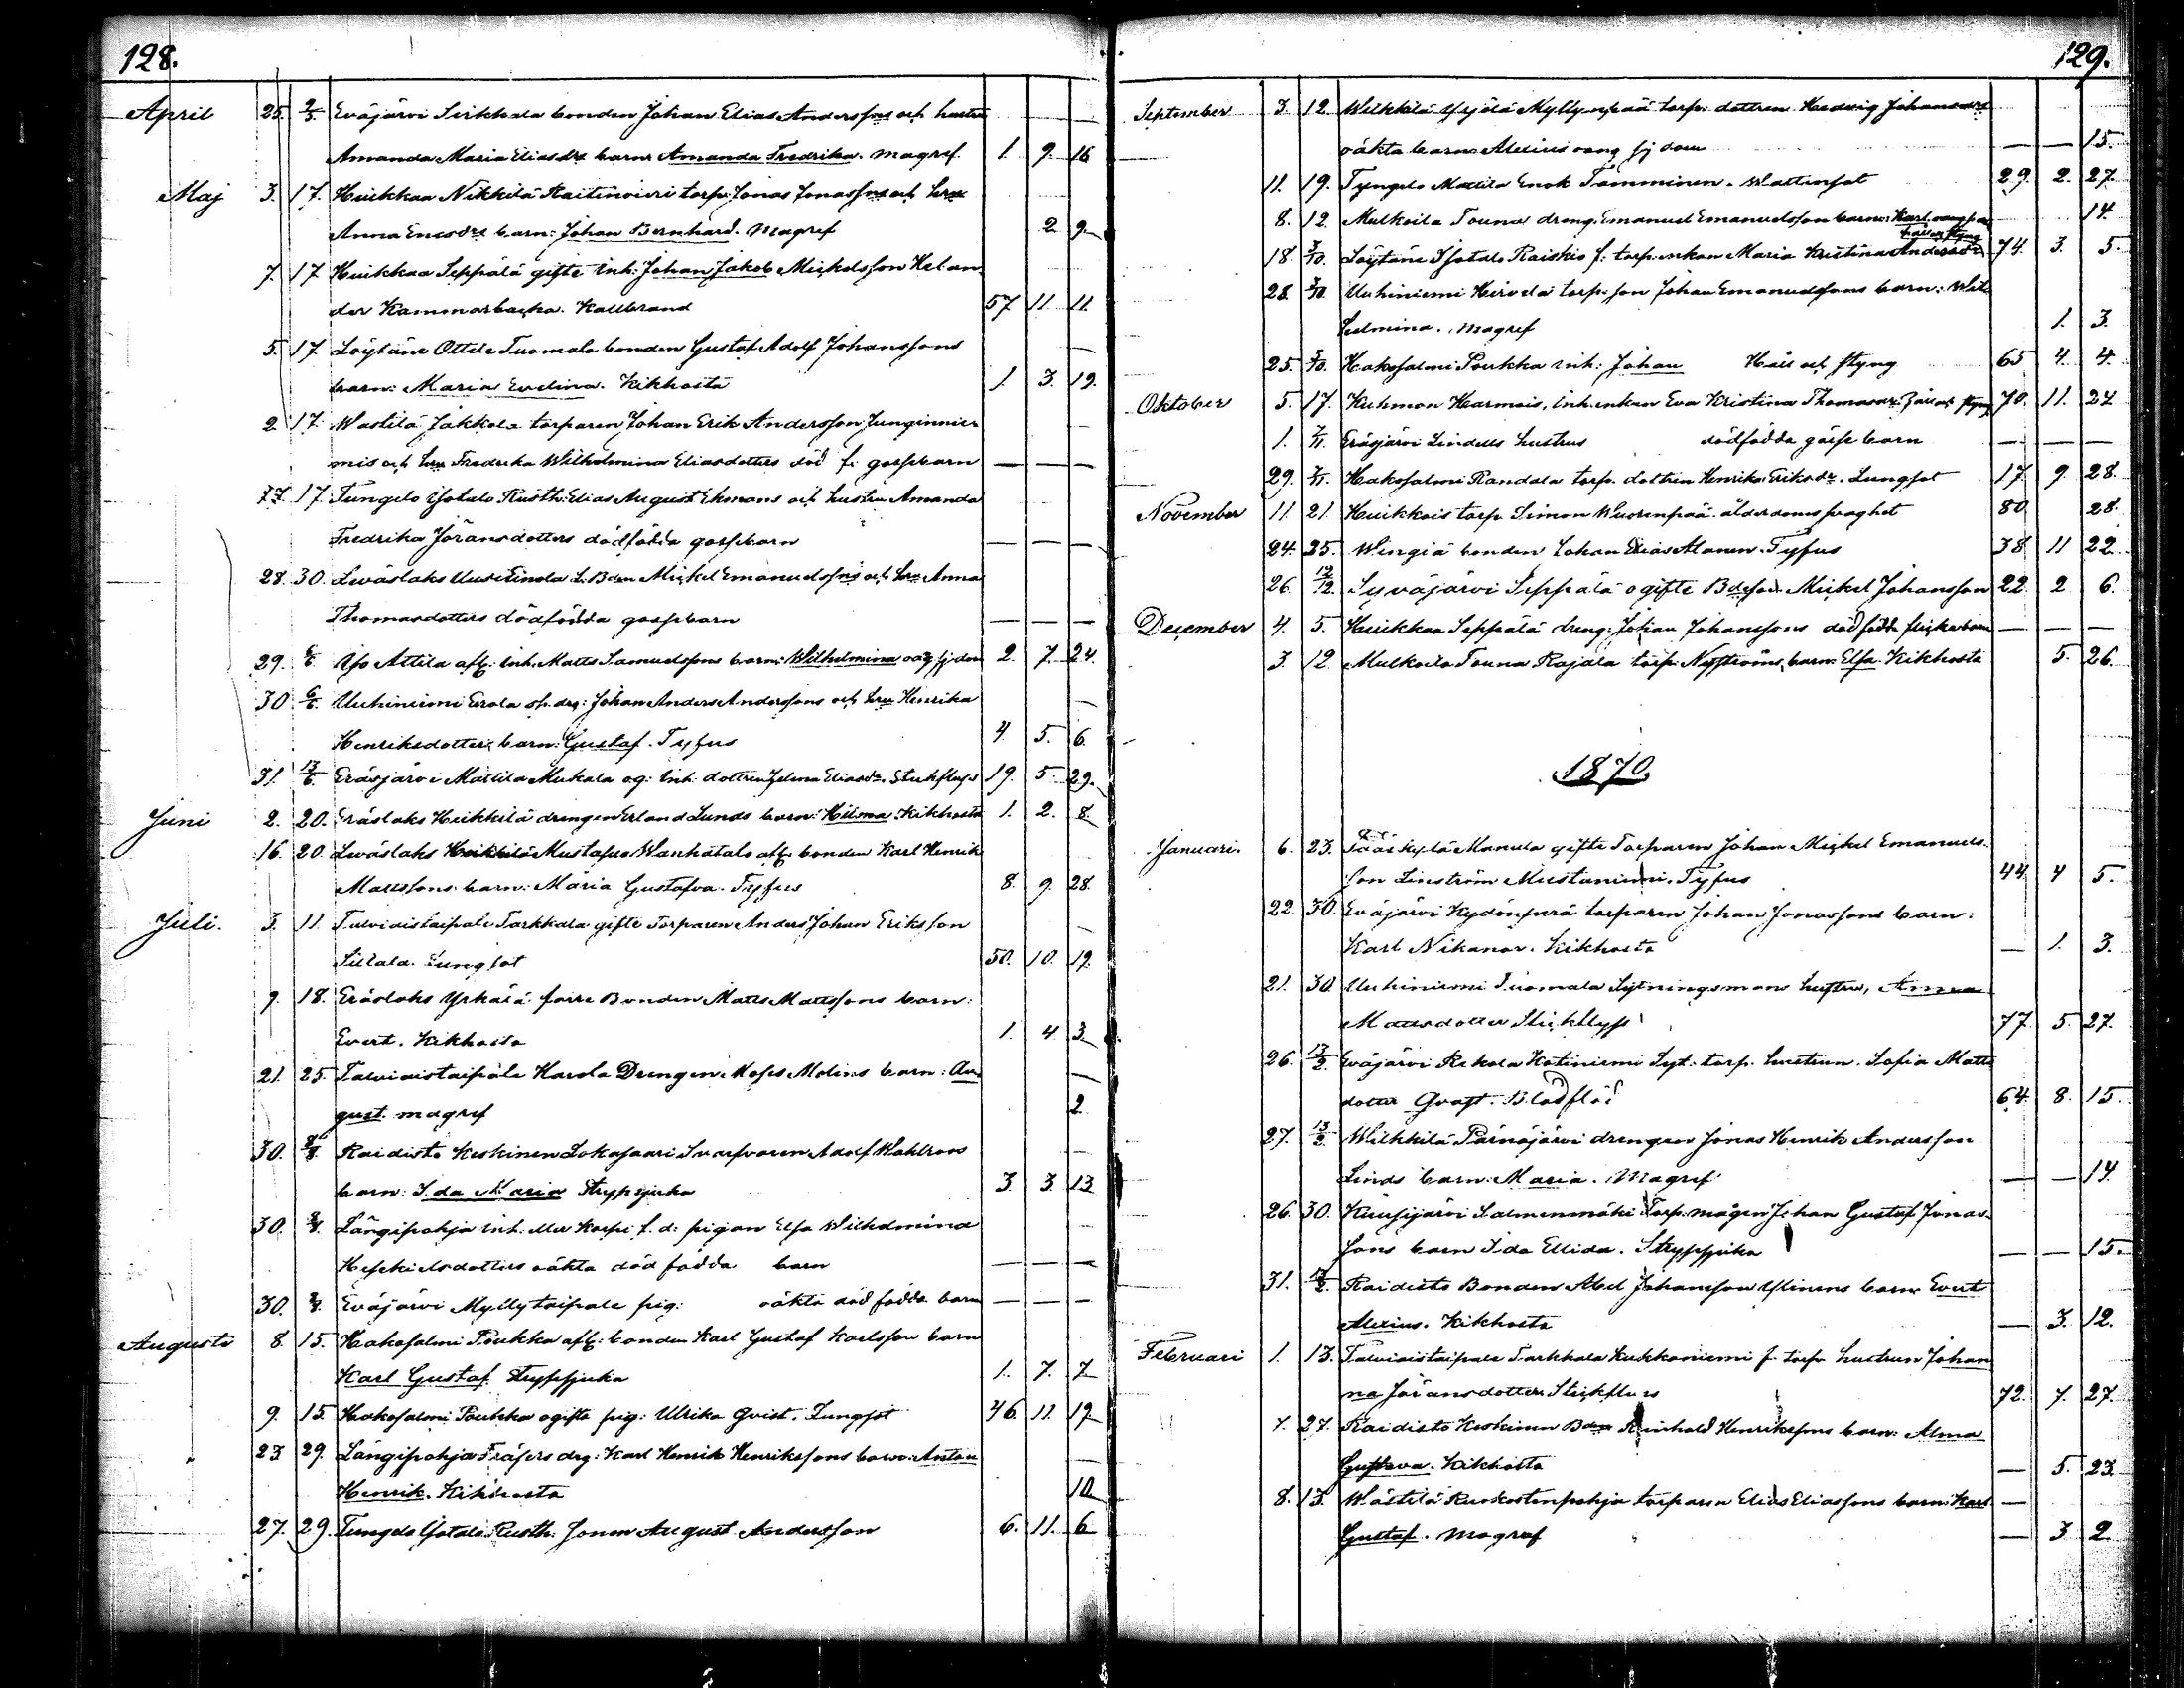 128.
April 25. 2/5 Eväjärvi Sirkkala bonden Johan Elias Anderssons och hustru
Amanda Maria Eliasdrs barn: Amanda Fredrika. magref 1. 9. 16
Maj 3. 17. Huikkaa Nikkilä torp: Jonas Jonassons och hru
Anna Enosdrs barn: Johan Bernhard. Magref 2 9
7. 17 Huikkaa Seppälä gifte inh: Johan Jakob Mickelsson Helan
der Kammarbacka. Kallbrand 57 11 11.
5. 17. Löytäne Ottile Tuomala bonden Gustaf Adolf Johanssons
barn: Maria Evelina. Kikhosta 1. 3. 19.
2 17. Wastilä Jakkola torparen Johan Erik Andersson Junginnie
mis och hru Fredrika Wilhelmina Eliasdotters död f. gossbarn — — —
17. 17 Tungelo Yotalo Rusth: Elias August Ekmans och hustru Amanda
Fredrika Jöransdotters dödfödda gossbarn — — —
28. 30. Leväslaks Uusi Einola L. Bden Mickel Emanuelssons och hru Anna
Thomasdotters dödfödda gossbarn — — —
29. 6/6 Yso Attila afs: inh: Matts Samuelssons barn: Wilhelmina oäg sjdom 2. 7. 24.
30 6/6. Uuhiniemi Erola sp. drg: Johan Anders Anderssons och hru Henrika
Henriksdotters barn: Gustaf. Tyfus 4 5. 6.
31. 13/6. Eräsjärvi Mattila Mukala og: inh. dottren Jelena Eliasdr. Stickfluss 19. 5. 29.
Juni 2. 20. Eräslaks Heikkilä drengen Erland Lunds barn: Hilma. Kikhosta 1. 2. 8.
16. 20. Leväslaks Mustafva Wanhatalo afs. bonden Karl Henrik
Mattssons barn: Maria Gustafva. Tyfus 8. 9. 28.
Juli. 3. 11. Talviaistaipale Tarkkala gifte Torparen Anders Johan Eriksson
Sillala. Lungsot 50. 10. 19.
9. 18. Eräslaks Yrkälä förre Bonden Matts Mattssons barn:
Evert. Kikhosta 1. 4 3
21. 25. Talviaistaipale Harola Drengen Moses Molins barn: Au
gust. magref 2
30. 8/8. Raidisto Keskinen Lokasaari Svarfvaren Adolf Wahlroos
barn: Ida Maria Strypsjuka 3. 3. 13
30. 8/8. Längipohja inh: Karpi f. d: pigan Elsa Wilhelmina
Hesekielsdotters oäkta död födda barn — — —
30. 8/8. Eväjärvi Myllytaipale pig: oäkta död födda barn — — —
Augusti 8. 15. Hakosalmi Poukka afs: bonden Karl Gustaf Karlsson barn
Karl Gustaf. Strypsjuka 1. 7. 7
9. 15. Hakosalmi Poukka ogifta pig: Ulrika Qvist. Lungsot 46. 11. 19
23 29. Längipohja Träfers drg: Karl Henrik Henrikssons barn: Anton
Henrik. Kikhosta 10
27. 29. Tungelo Yotalo Rusth: Sonen August Andersson 6. 11. 6
129.
September 3. 12. Wilkkilä Yrjölä Myllynpää torp: dottren Hedvig Johansdrs
oäkta barn Alexius oäng sj dom — — 15.
11. 19. Tyngelo Mattila Enok Tamminen. Wattensot 29. 2. 27.
8. 12. Mulkoila Touna dreng: Emanuel Emanuelsson barn: Karl. oäng 14.
18. 3/10. Löytäne Isotalo Raiskio f. torp. enkan Maria Kristina Andersdr Håll och styng 74. 3. 5.
28. 3/10. Uuhiniemi Heirola torp: son Johan Emanuelssons barn: Wil
helmina. Magref 1. 3.
25. 3/10. Hakosalmi Poukka inh: Johan Håll och styng 65 4. 4.
Oktober 5. 17. Kuhmon Harmois, inh. enkan Eva Kristina Thomasdr. Håll och styng 70. 11. 27
1. 7/11. Eräsjärvi Lindells hustrus dödfödda gosse barn — — —
29. 7/11. Hakosalmi Randala torp. dottren Henrika Eriksdr. Lungsot 17. 9. 28.
November 11. 21. Huikkois torp. Simon Wuorenpää. ålderdoms svaghet 80 28.
24. 25. Wingiä bonden Johan Elias Alanen. Tyfus 38 11 22
26. 12/12. Syväjärvi Seppälä ogifte Bdeson Mickel Johansson 22. 2 6.
December 4. 5. Huikkaa Seppälä dreng: Johan Johanssons död födda flickebarn — — —
3. 12. Mulkoila Touna Rajala torp: Nyströms barn: Elsa. Kikhosta 5. 26.
1870.
Januari. 6. 23. Pääskylä Manula gifte Torparen Johan Mickel Emanuels
son Linström Mustaniemi. Tyfus 44. 4 5.
22. 30. Eväjärvi Kydönperä torparen Johan Jonassons barn:
Karl Nikanor. Kikhosta — 1. 3.
21. 30 Uuhiniemi Tuomala Sytningsmans hustru, Anna
Mattsdotter Stickfluss 77. 5. 27.
26. 13/2. Eväjärvi Rekola Kotiniemi Syt. torp. hustrun. Sofia Matts
dotter Qvast. Blodflöd 64. 8. 15.
27. 13/2. Wilkkilä Pärnäjärvi drengen Jonas Henrik Andersson
Linds barn: Maria. Magref — — 14.
26. 30. Kuusijärvi Salmenmäki Torp. mågen Johan Gustaf Jonas
sons barn Ida Ellida. Strypsjuka — — 15.
31. 13/2. Raidisto Bonden Abel Johansson Ylinens barn: Evert
Alexius. Kikhosta — 3. 12.
Februari 1. 13. Talviaistaipale Tarkkala Kukkoniemi f. torp hustrun Johan
na Jöransdotter. Stickfluss 72. 7. 27.
7. 27. Raidisto Keskinen Bden Reinhold Henrikssons barn: Alma
Gustava. Kikhosta — 5. 23.
8. 13. Wästilä Ruokostenpohja torparen Elias Eliassons barn: Karl —
Gustaf. Magref — 3 2